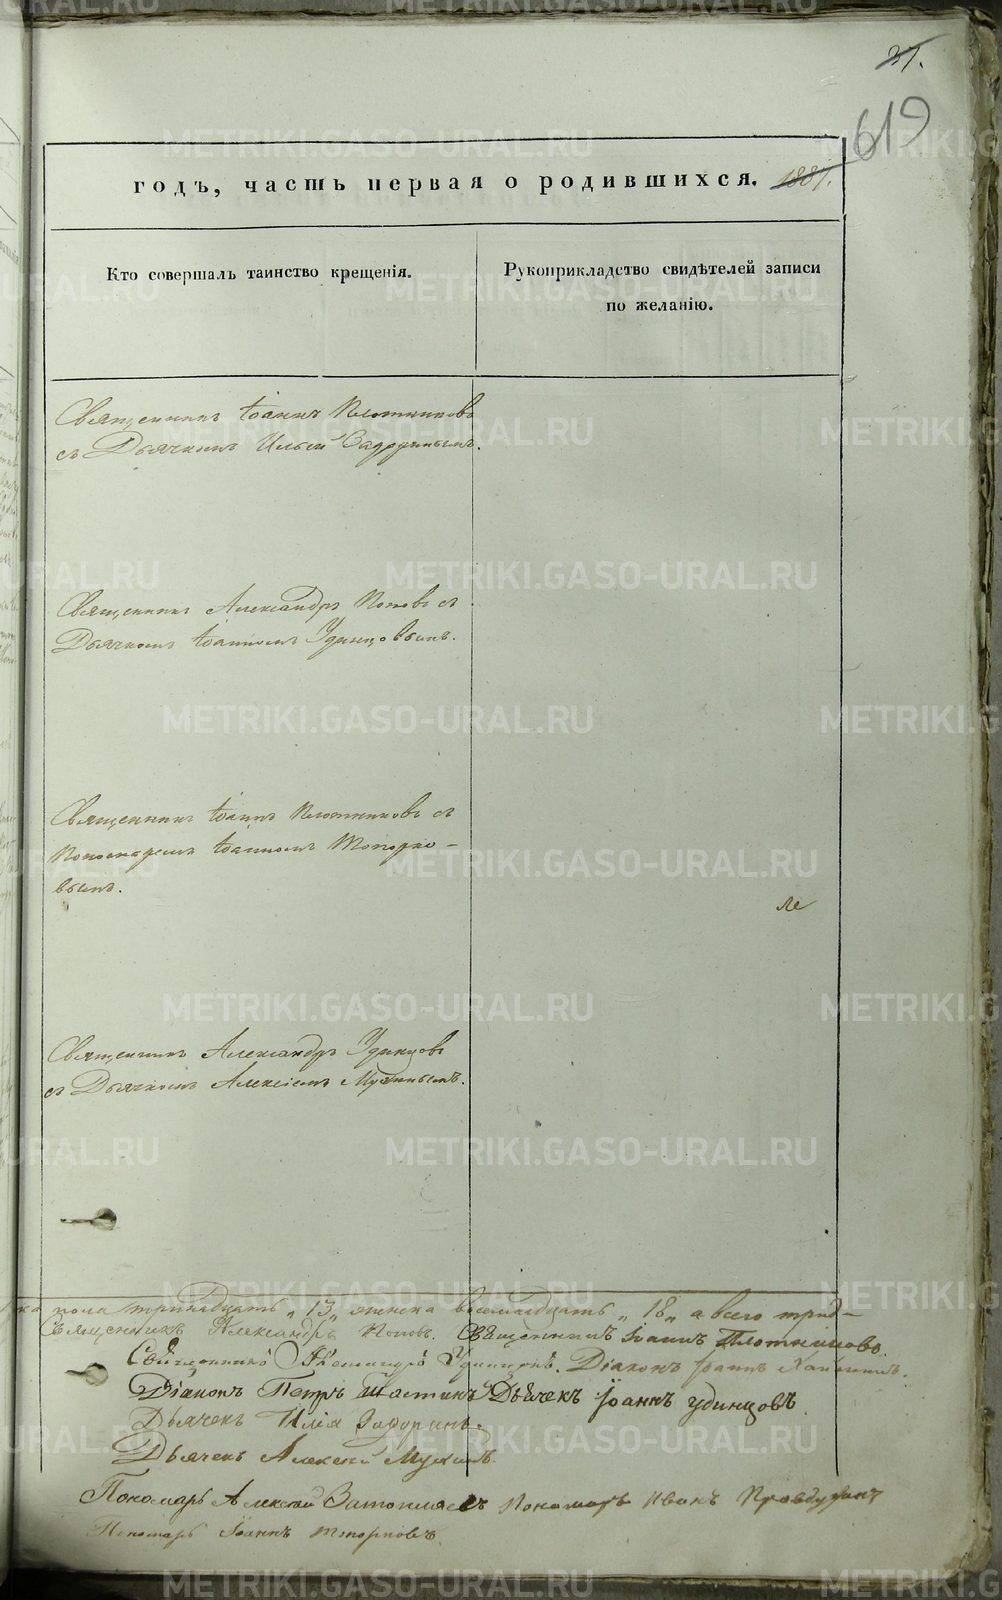 37.
619
годъ, часть первая о родившихся. 1887.
Кто совершалъ таинство крещенія.
Рукоприкладство свидѣтелей записи
по желанію.
Священникъ Іоаннъ Плотниковъ
съ Дьячкомъ Ильей
Священникъ Александръ Поповъ съ
Дьячкомъ Іоанномъ Удинцовымъ.
Священникъ Іоаннъ Плотниковъ съ
Пономаремъ Іоанномъ Топорко-
вымъ.
Священникъ Александръ Удинцовъ
съ Дьячкомъ Алексіемъ Мухинымъ.
пола тринадцать „13„ женска восемнадцать „18„ а всего трид-
Священникъ Александръ Поповъ. Священникъ Іоаннъ Плотниковъ.
Священникъ Александръ Удинцовъ. Діаконъ Іоаннъ
Діаконъ Петръ Шастинъ Дьячекъ Іоаннъ Удинцовъ
Дьячекъ Илія
Дьячекъ Алексей Мухинъ.
Пономарь Алексей Пономарь Иванъ
Пономарь Іоаннъ Топорковъ.
METRIKI.GASO-URAL.RU